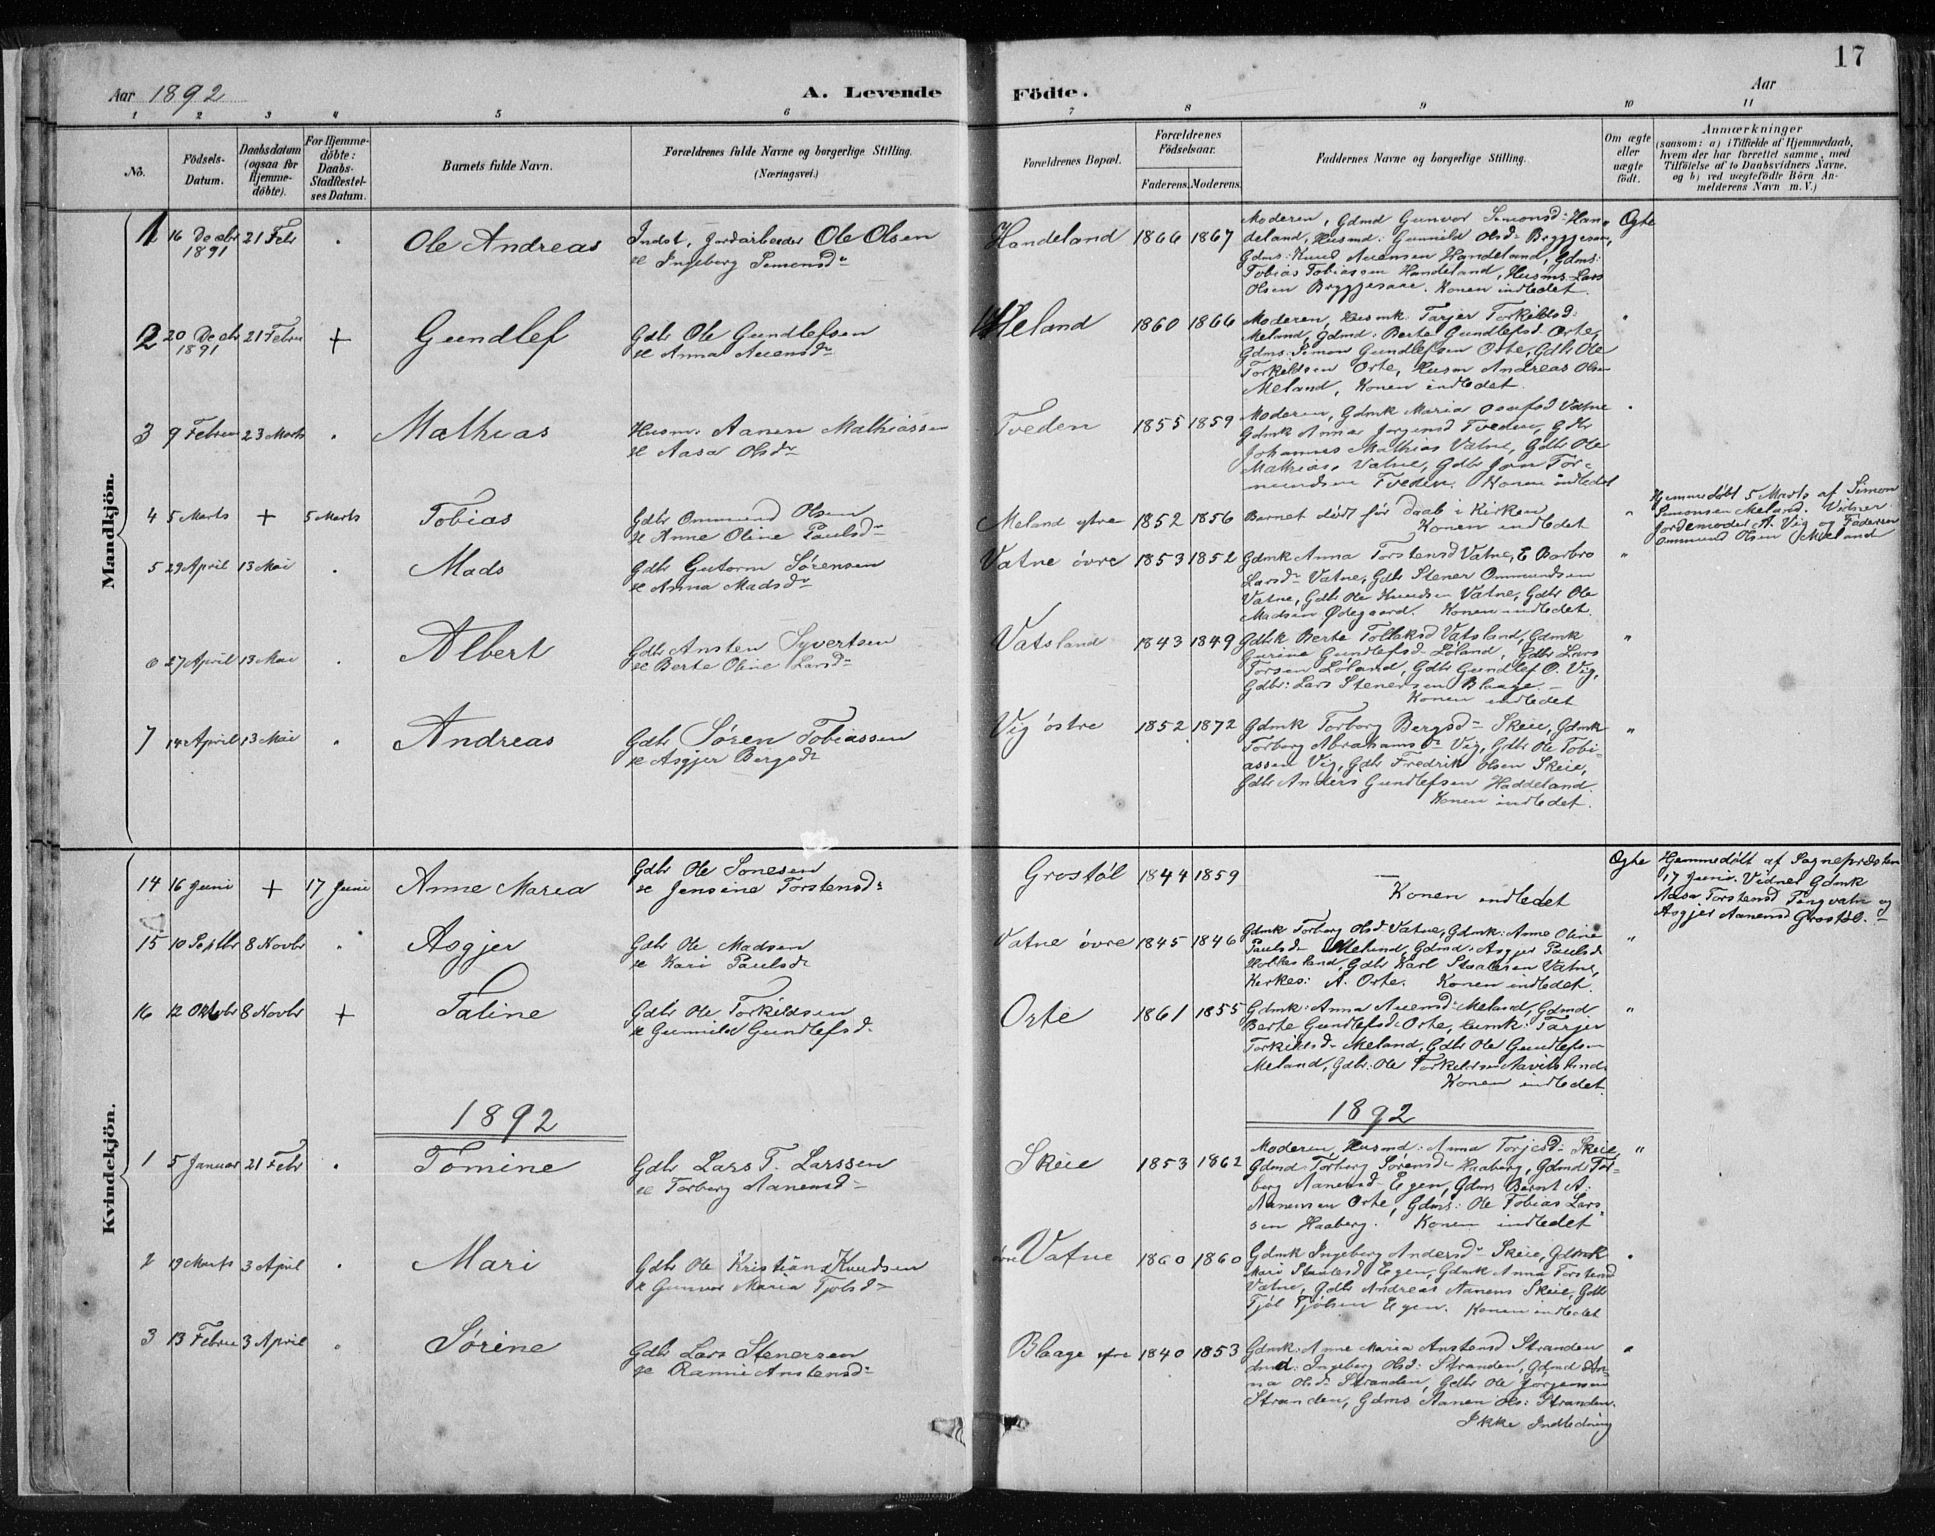 17
Aar 1892
A. Levende
Födte.
Aar
1 2 3 4 5 6 7 8 9 10 11
No.
Födsels-Datum.
Daabsdatum (ogsaa for Hjemmedöbte).
For Hjemmedöbte: Daabs-Stadfestelses Datum.
Barnets fulde Navn.
Forældrenes fulde Navne og borgerlige Stilling. (Næringsvei.)
Forældrenes Bopæl.
Forældrenes Födselsaar.
Faderens. Moderens.
Faddernes Navne og borgerlige Stilling.
Om ægte eller uægte födt.
Anmærkninger
(saasom: a) i Tilfælde af Hjemmedaab, hvem der har forrettet samme, med Tilföielse af to Daabsvidners Navne, og b) ved uægtefödte Börn Anmelderens Navn m. V.)
Mandkjön.
1 16 Decbr 1891 21 Febr " Ole Andreas
Indst, Jordarbeider Ole Olsen
& Ingeborg Simonsdr
Handeland 1866 1867
Moderen, Gdmd Gunvor Simonsd: Han-
deland, Husmd: Gunnild Olsdr Bryggesaae,
Gdms: Knud Auensen Handeland, Gdms:
Tobias Tobiassen Handeland, Husms. Lars
Olsen Bryggesaae. Konen indledet.
Ægte
2 20 Decbr 1891 21 Febru + Gundlef
Gdbr Ole Gundlefsen
& Anna Auensdr
Meland 1860 1866
Moderen, Husmk. Tarjer Torkildsd:
Meland, Gdmd: Berte Gundlefsd. Orte,
Gdms: Simon Gundlefsen Orte, Gdbr Ole
Torkildsen Orte, Husm Andreas Olsen
Meland, Konen indledet.
"
3 9 Februar 23 Marts " Mathias
Husm. Aanen Mathiassen
& Aasa Olsdr
Tveden 1855 1859
Moderen, Gdmk Maria Osufsd Vatne
Gdmk Anna Jørgensd Tveden, Gdbr
Johannes Mathias Vatne, Gdbr Ole
Mathias. Vatne, Gdbr Jon Tor-
mundsen Tveden. Konen indledet
"
4 5 Marts + 5 Marts Tobias
Gdbr Ommund Olsen
& Anne Oline Paulsdr
Meland ytre 1852 1856
Barnet dødt før Daab i Kirken
Konen indledet
"
Hjemmedøbt 5 Marts af Simon
Simonsen Meland. Vidner
Jordemoder A. Vig og Faderen
Ommund Olsen Meland
5 29 April 13 Mai " Mads
Gdbr Gutorm Sørensen
& Anna Madsdr
Vatne øvre 1853 1852
Gdmk Anna Torstensd Vatne, E Barbro
Larsdr Vatne, Gdbr Stener Ommundsen
Vatne, Gdbr Ole Knudsen Vatne, Gdbr Ole
Madsen Ødegaard. Konen indledet.
"
6 27 April 13 Mai " Albert
Gdbr Ansten Syvertsen
& Berte Oline Larsdr
Vatsland 1843 1849
Gdbk Berte Tollaksd Vatsland, Gdmk
Gurine Gundlefsd. Løland, Gdbr Lars
Torsen Løland, Gdbr Gundlef O. Vig,
Gdbr: Lars Stenersen Blaage.
Konen indledet
"
7 14 April 13 Mai " Andreas
Gdbr Søren Tobiassen
& Asgjer Bergsdr
Vig østre 1852 1872
Gdmk Torborg Bergsdr Skeie, Gdmk
Torborg Abrahamsdr Vig, Gdbr Ole Tobi-
assen Vig, Gdbr Fredrik Olsen Skeie,
Gdbr Anders Gundlefsen Haddeland.
Konen indledet.
"
Kvindekjön.
14 16 Juni + 17 Juni Anne Maria
Gdbr Ole Sonesen
& Jensine Torstensdr
Grostøl 1844 1859
Konen indledet
Ægte
Hjemmedøbt af Sognepræsten
17 Juni. Vidner Gdmk
Aasa Torstensd Tingvatn og
Asgjer Aanensd Grostøl.
15 10 Septbr 8 Novbr " Asgjer
Gdbr Ole Madsen
& Kari Paulsdr
Vatne øvre 1845 1846
Gdmk Torborg Olsd Vatne, Gdmk: Anne Oline
Paulsdr Meland, Gdmd: Asgjer Paulsd
Gdbr Karl Staalesen Vatne,
Kirkes: A. Orte. Konen indledet.
"
16 12 Oktobr 8 Novbr + Taline
Gdbr Ole Torkildsen
& Gunnild Gundlefsdr
Orte 1861 1855
Gdmk: Anna Auensd Meland, Gdmd
Berte Gundlefsd. Orte, Tarjer
Torkildsd. Meland, Gdbr Ole Gundlefsen
Meland, Gdbr: Ole Torkildsen
Konen indledet.
"
1892
1892
1 5 Januar 21 Febr " Tomine
Gdbr Lars T. Larssen
& Torborg Aanensdr
Skeie 1853 1862
Moderen, Husmd: Anna Torjesd: Skeie,
Gdmd: Torborg Sørensdr Haaberg, Gdmd Tor-
borg Aanensd Egen, Gdms Bernt A.
Aanensen Orte, Gdms: Ole Tobias Lars-
sen Haaberg. Konen indledet
"
2 19 Marts 3 April " Mari
Gdbr Ole Kristian Knudsen
& Gunvor Maria Tjølsdr
øvre Vatne 1860 1860
Gdmk Ingeborg Andersdr Skeie, Gdmk
Mari Staalesd Egen, Gdmk Anna Torstensd
Vatne, Gdbr Andreas Aanens Skeie, Gdbr
Tjøl Tjølsen Egen. Konen indledet
"
3 13 Februar 3 April " Sørine
Gdbr Lars Stenersen
& Rannie Anstensdr
Blaage ytre 1840 1853
Gdmk: Anne Maria Anstensd Stranden
Ingeborg Olsd: Stranden, Gdmd An-
na Olsdr Stranden, Gdbr Ole Jørgensen
Stranden, Gdms Aanen Ols: Stranden.
Ikke Indledning
"